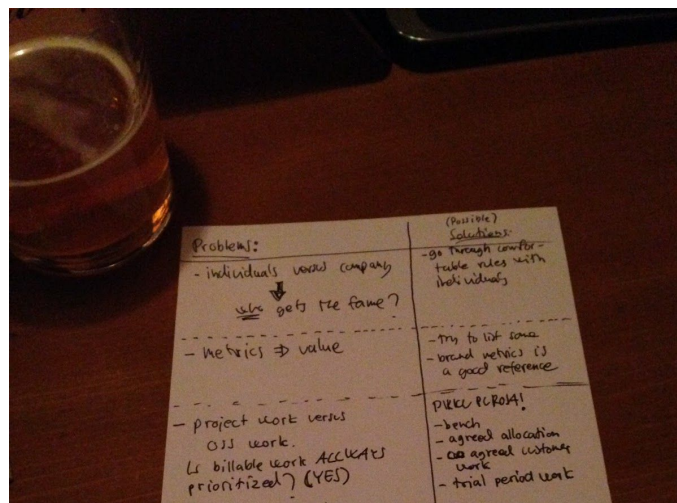 Problems:
- individuals versus company
who gets the fame?
- metrics ⇒ value
- project work versus
OSS work.
↳ billable work ALLWAYS
prioritized? (YES)
(Possible)
Solutions:
- go through comfor-
table rules with
individuals
- try to list some
- brand metrics is
a good reference
- bench
- agreed allocation
- agreed customer
work
- trial period work